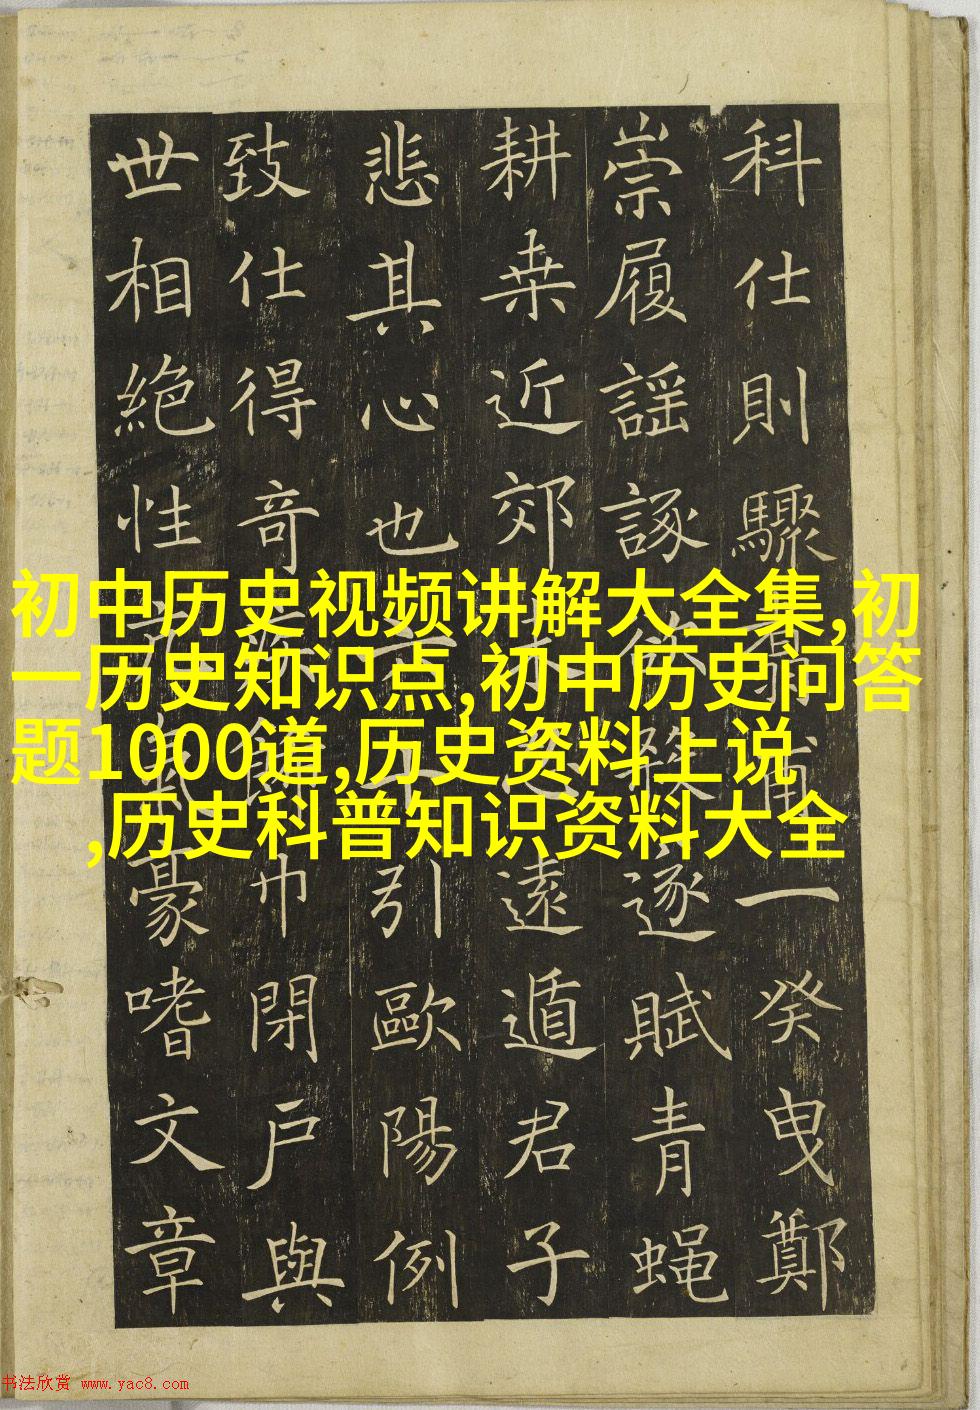 初中历史视频讲解大全集,初
一历史知识点,初中历史问答
题1000道,历史资料上说
,历史科普知识资料大全
科仕則驟甫一癸曳鄭
崇履謡諑逐賦青蝿
耕桒近郊遠遁君子
悲其心也引歐陽例
致仕得奇巾閉戸與
世相絶性豪嗜文章
书法欣赏 www.yac8.com